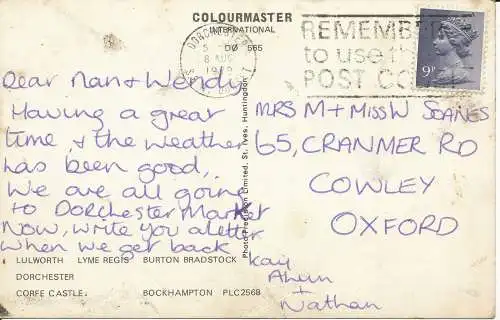 COLOURMASTER
INTERNATIONAL
DORCHESTER
8 AUG
REMEMBER
to use the
POST CO
9P
Dear Nan + Wendy
Having a great
time, + the weather
has been good,.
We are all going
to Dorchester Market
Now, write you a letter
when we get back
Kay
Ahun
+
Nathan
MRS M + MISS W SOANES
65, CRANMER RD
COWLEY
OXFORD
Photo Precision Limited, St. Ives, Huntingdon
LULWORTH LYME REGIS BURTON BRADSTOCK
DORCHESTER
CORFE CASTLE. BOCKHAMPTON PLC2568